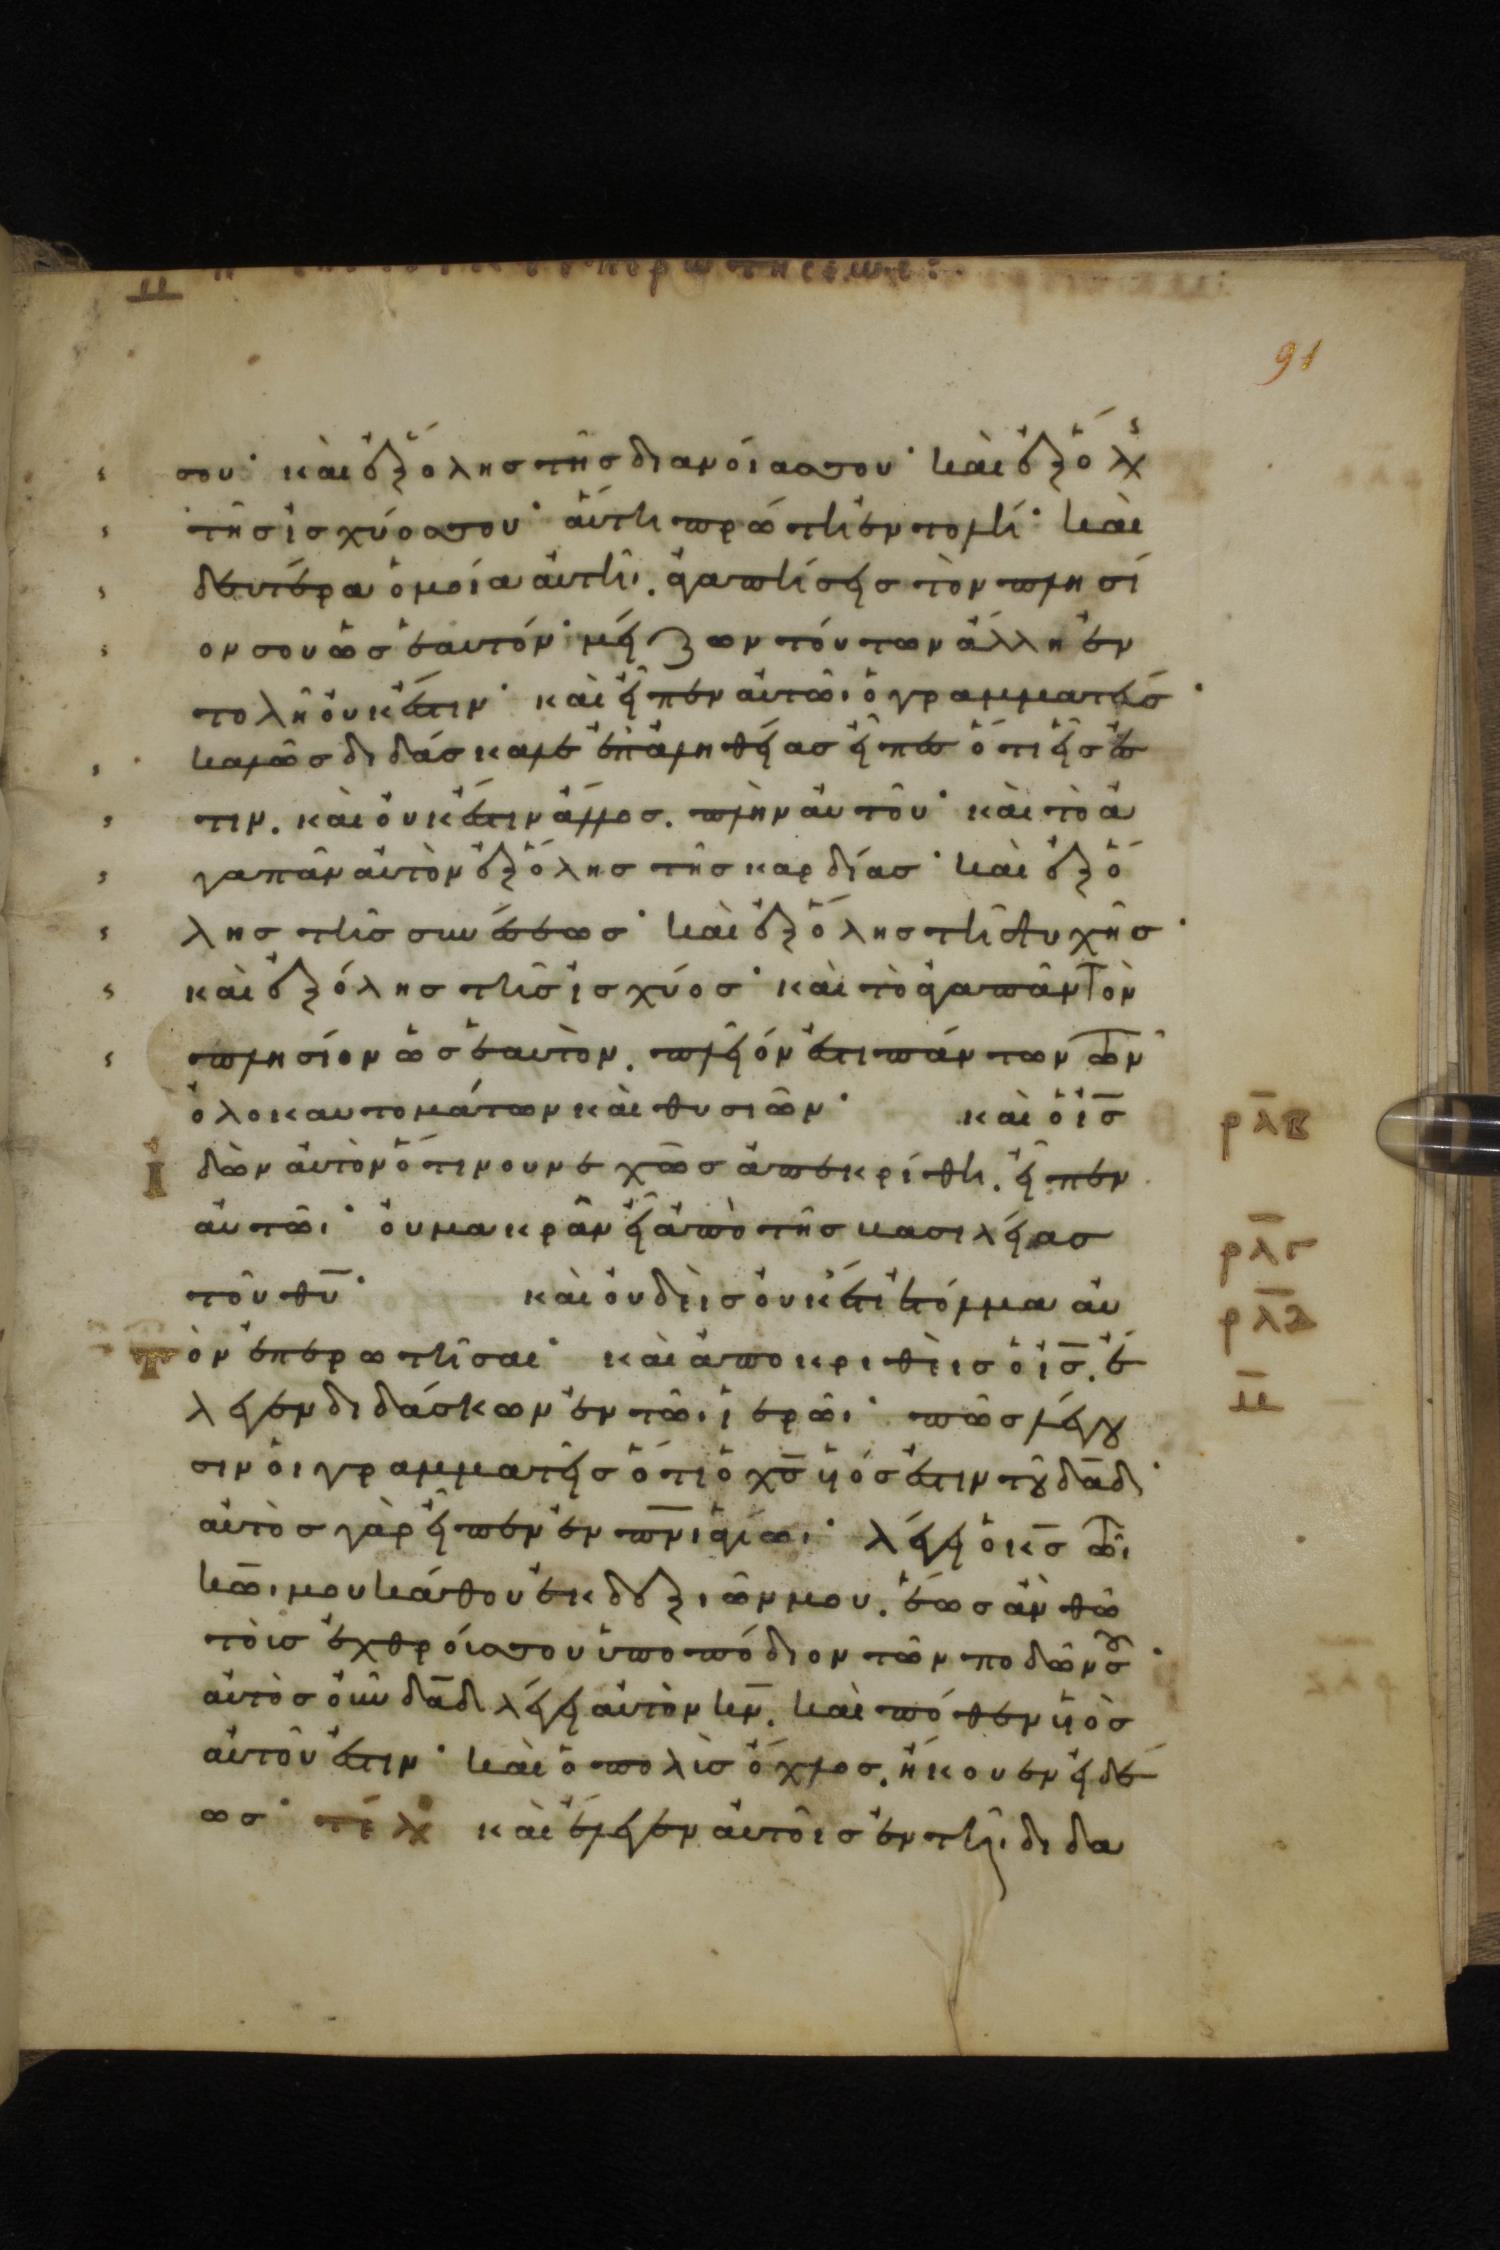 91
σου· καὶ ἐξ ὅλης τῆς διανοίας σου· καὶ ἐξ ὅλης
τῆς ἰσχύος σου· αὕτη πρώτη ἐντολή· καὶ
δευτέρα ὁμοία αὐτῆι. ἀγαπήσεις τὸν πλησί
ον σου ὡς ἑαυτόν· μείζων τούτων ἄλλη ἐν
τολὴ οὐκ ἔστιν· καὶ εἶπεν αὐτῶι ὁ γραμματεύς·
καλῶς διδάσκαλε ἐπ ἀληθείας εἶπας ὅτι εἷς ἐσ
τιν. καὶ οὐκ ἔστιν ἄλλος. πλὴν αὐτοῦ· καὶ τὸ ἀ
γαπᾶν αὐτὸν ἐξ ὅλης τῆς καρδίας· καὶ ἐξ ὅ
λης τῆς συνέσεως· καὶ ἐξ ὅλης τῆς ψυχῆς·
καὶ ἐξ ὅλης τῆς ἰσχύος· καὶ τὸ ἀγαπᾶν τὸν
πλησίον ὡς ἑαυτὸν. πλεῖόν ἐστι πάντων τῶν
ὁλοκαυτομάτων καὶ θυσιῶν· καὶ ὁ ἰς
ρλβ
ἰδὼν αὐτὸν ὅτι νουνεχῶς ἀπεκρίθη. εἶπεν
αὐτῶι· οὐ μακρὰν εἶ ἀπὸ τῆς βασιλείας
ρλγ
τοῦ θυ· καὶ οὐδεὶς οὐκέτι ἐτόλμα αὐ
ρλδ
τὸν ἐπερωτῆσαι· καὶ ἀποκριθεὶς ὁ ἰς. ἔ
λεγεν διδάσκων ἐν τῶι ἱερῶι· πῶς λέγου
σιν οἱ γραμματεῖς ὅτι ὁ χς υἱός ἐστιν τοῦ δαδ·
αὐτὸς γὰρ εἶπεν ἐν πνι ἁγίωι· λέγει ὁ κς τῶι
κωι μου κάθου ἐκ δεξιῶν μου. ἕως ἂν θῶ
τοὺς ἐχθρούς σου ὑποπόδιον τῶν ποδῶν σου·
αὐτὸς οὖν δαδ λέγει αὐτὸν κν. καὶ πόθεν υἱὸς
αὐτοῦ ἐστιν· καὶ ὁ πολὺς ὄχλος. ἤκουεν ἡδέ
ως· τέλ καὶ ἔλεγεν αὐτοῖς ἐν τῆι διδα